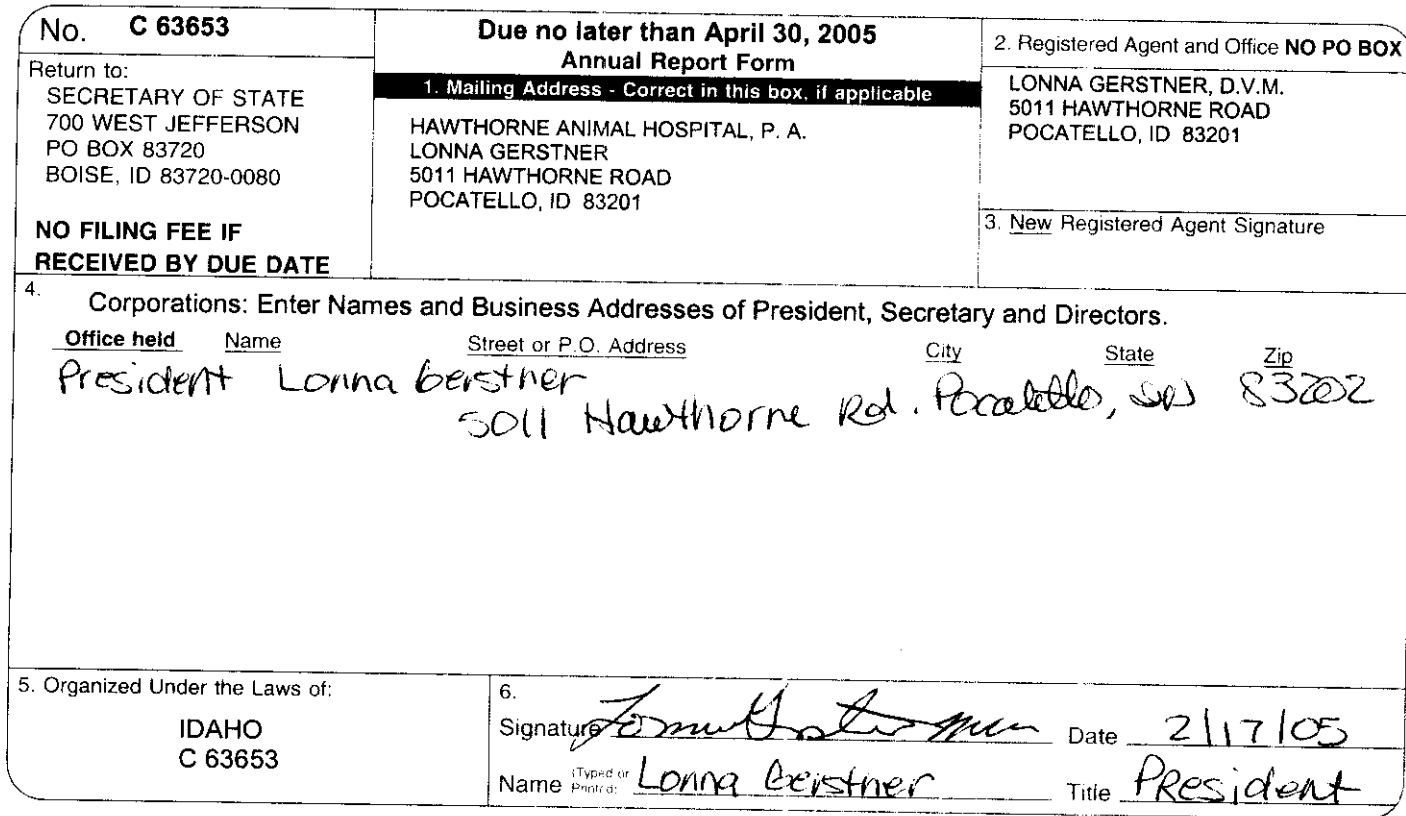 No. C 63653
Return to:
SECRETARY OF STATE
700 WEST JEFFERSON
PO BOX 83720
BOISE, ID 83720-0080
NO FILING FEE IF
RECEIVED BY DUE DATE
Due no later than April 30, 2005
Annual Report Form
1. Mailing Address - Correct in this box, if applicable
HAWTHORNE ANIMAL HOSPITAL, P. A.
LONNA GERSTNER
5011 HAWTHORNE ROAD
POCATELLO, ID 83201
2. Registered Agent and Office NO PO BOX
LONNA GERSTNER, D.V.M.
5011 HAWTHORNE ROAD
POCATELLO, ID 83201
3. New Registered Agent Signature
4.
Corporations: Enter Names and Business Addresses of President, Secretary and Directors.
Office held Name Street or P.O. Address City State Zip
President Lonna Gerstner
5011 Hawthorne Rd. Pocatello, 83202
5. Organized Under the Laws of:
IDAHO
C 63653
6.
Signature Date 2/17/05
Name (Typed or Printed) Lonna Gerstner Title President